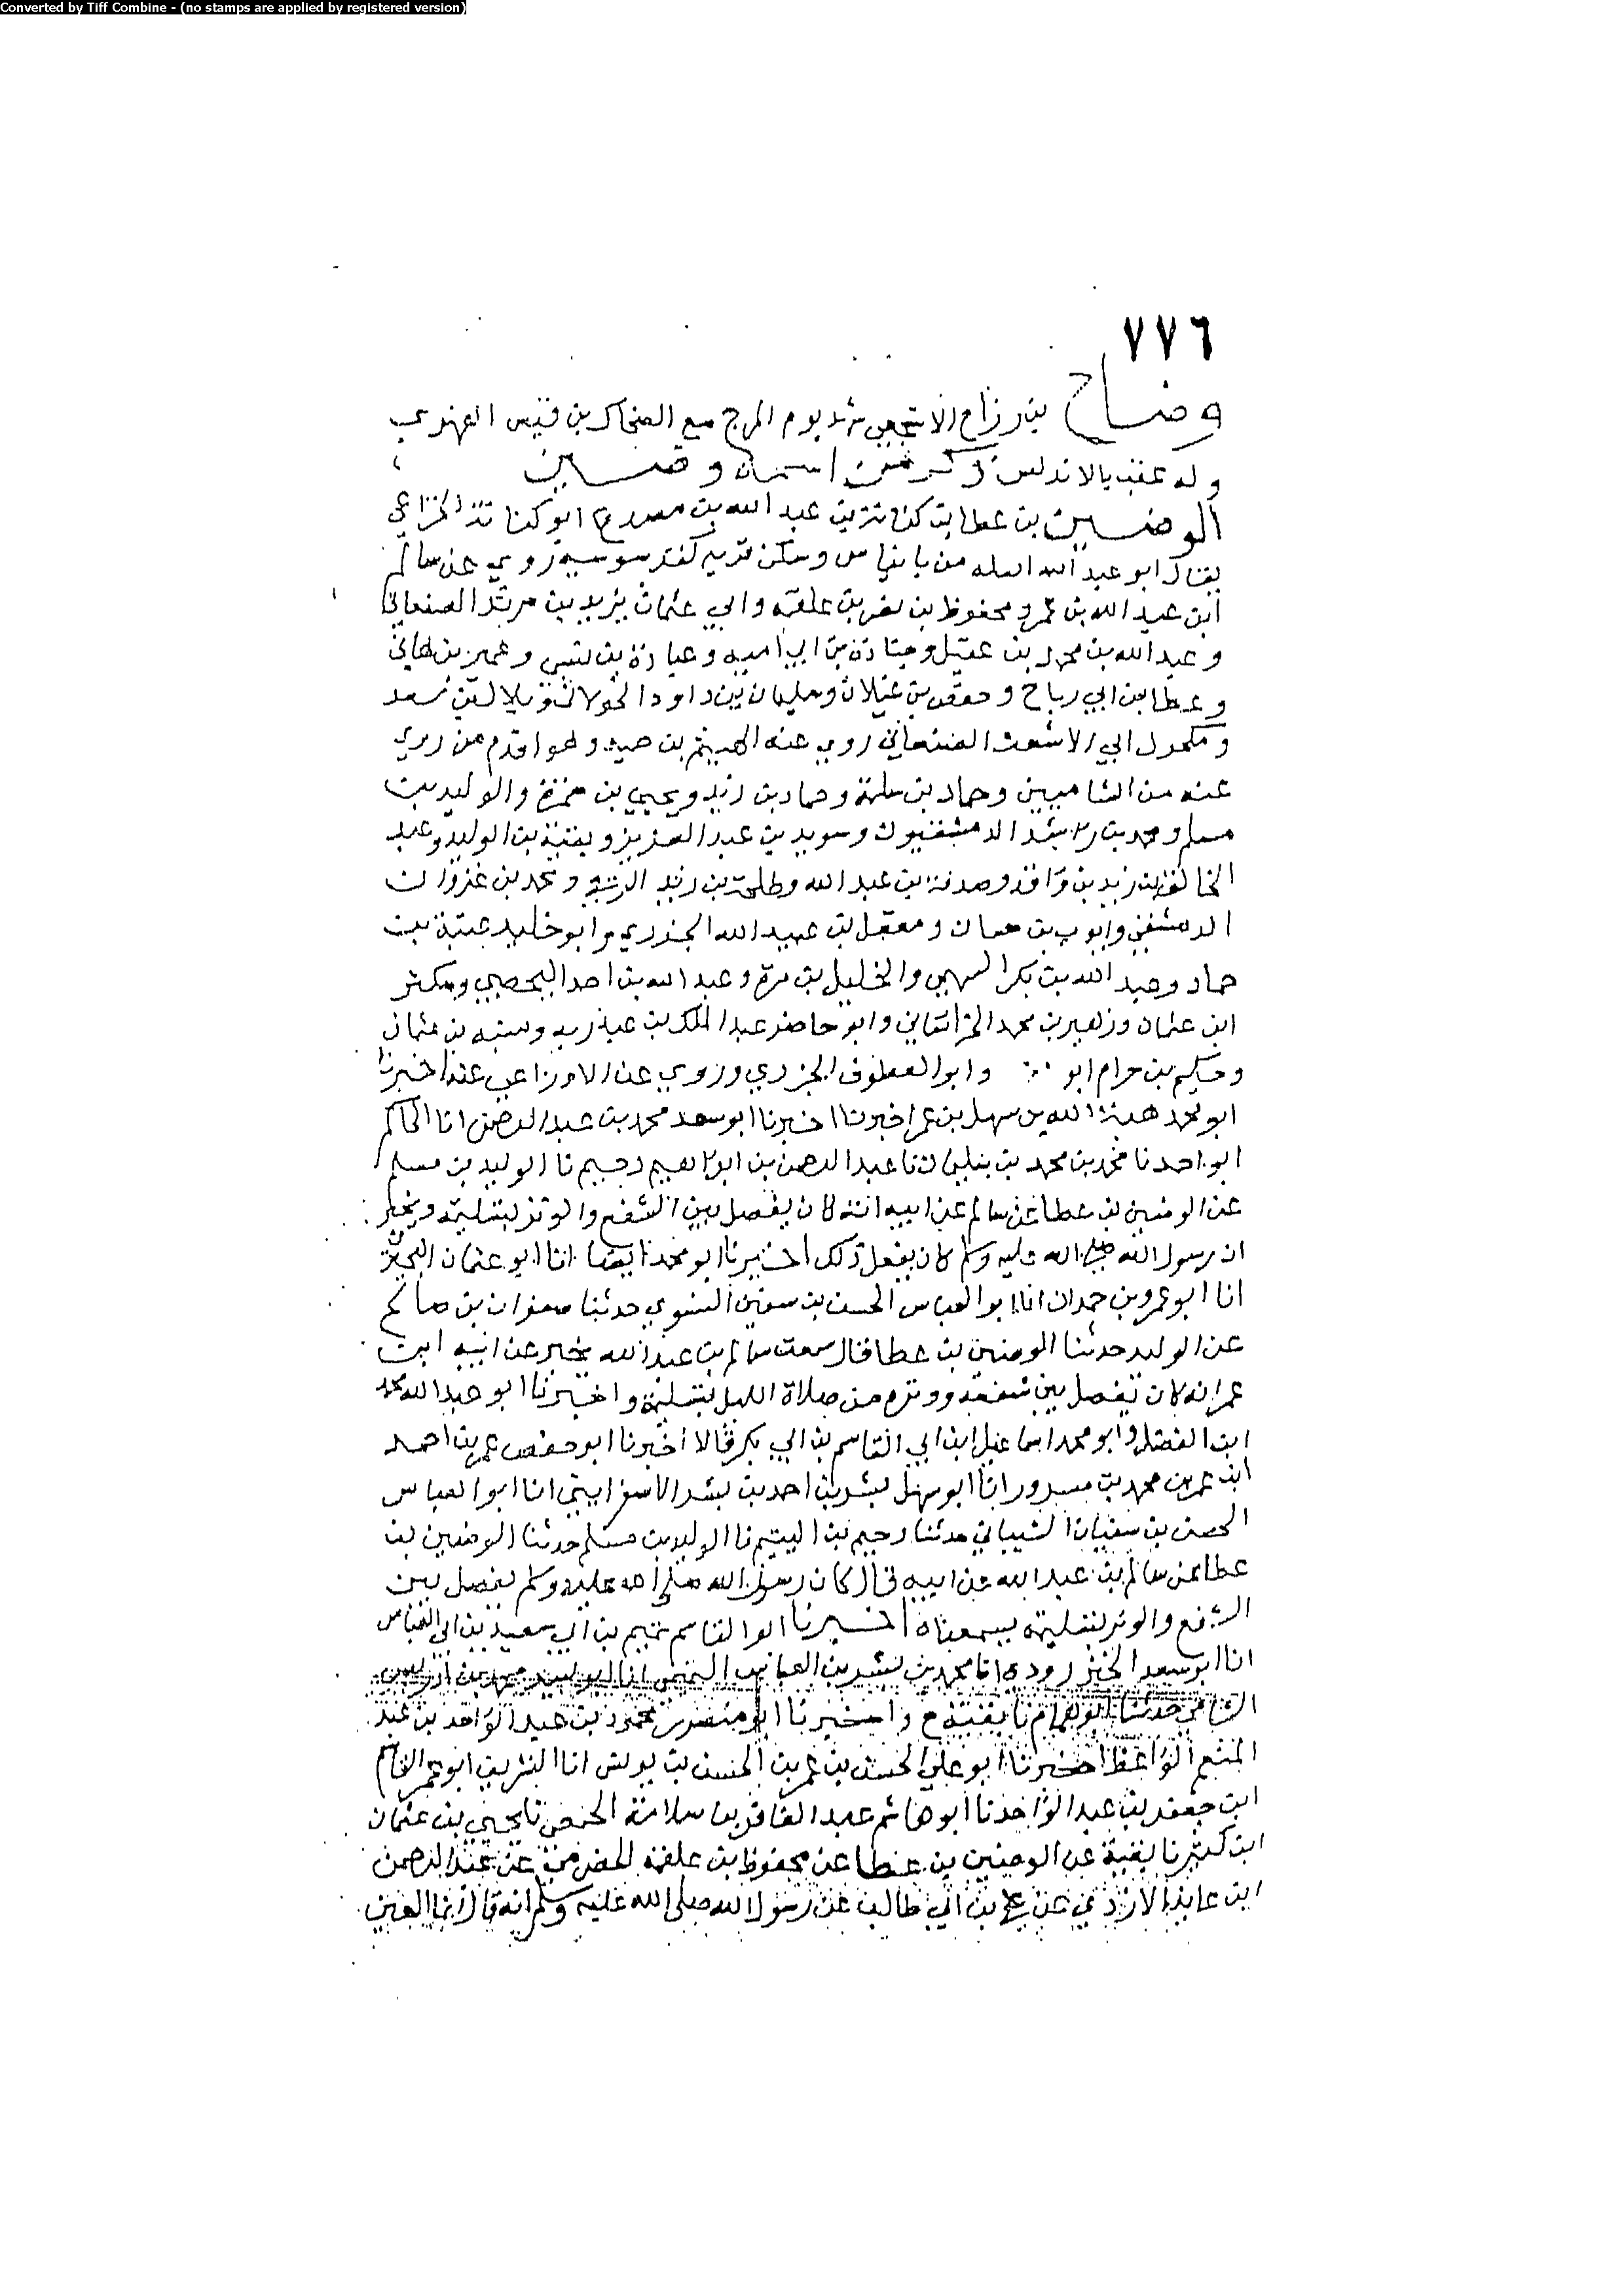 Converted by Tiff Combine - (no stamps are applied by registered version)
٧٧٦
وضاح بن رزاح الاشجعي شهد يوم المرج مع الضحاك بن قيس الفهري
وله عقب بالاندلس ذكر من اسمه وضين
الوضين بن عطا بن كنانة بن عبد الله بن مصدع ابو كنانة الخزاعي
يقال ابو عبد الله اصله من بانياس وسكن قرية كفرسوسية روي عن سالم
ابن عبد الله بن عمرو محفوظ بن علقمة وابي عثمان يزيد بن مرثد الصنعاني
وعبد الله بن محمد بن عقيل وجنادة بن ابي امية وعبادة بن نسي وعمير بن هاني
وعطا بن ابي رباح و بن غيلان وسليمان بن داود الخولاني وبلال بن سعد
ومكحول ابي الاشعث الصنعاني روي عنه الهيثم بن حميد وهو اقدم من روي
عنه من الشاميين وحماد بن سلمة وحماد بن زيد ويحيي بن حمزة والوليد بن
مسلم ومحمد بن راشد الدمشقيون وسويد بن عبد العزيز وبقية بن الوليد وعبد
الخالق بن زيد بن واقد وصدقة بن عبد الله وطلحة بن زيد الرقي ومحمد بن غزوان
الدمشقي وايوب بن حسان ومعقل بن عبيد الله الجزري وابو خليد عتبة بن
حماد وعبد الله بن بكر السهمي والخليل بن مرة وعبد الله بن احمد اليحصبي
ابن عثمان وزهير بن محمد الخراساني وابو حاضر عبد الملك بن عبد ربه ومنبه بن عثمان
وحكيم بن حرام ابو وابو العطوف الجزري وروي عن الاوزاعي عنه اخبرنا
ابو محمد هبة الله بن سهل بن عمر اخبرنا اخبرنا ابو سعد محمد بن عبد الرحمن انا الحاكم
ابو احمد نا محمد بن محمد بن سليمان نا عبد الرحمن بن ابراهيم دحيم نا الوليد بن مسلم
عن الوضين بن عطا عن سالم عن ابيه انه كان يفصل بين الشفع والوتر بتسليمة ويخبر
ان رسول الله صلى الله عليه وسلم كان يفعل ذلك اخبرنا ابو محمد ايضا انا ابو عثمان البحيري
انا ابو عمرو بن حمدان انا ابو العباس الحسن بن سفين النسوي حدثنا صفوان بن صالح
عن الوليد حدثنا الوضين بن عطا قال سمعت سالم بن عبد الله يخبر عن ابيه ابن
عمر انه كان يفصل بين شفعه ووتره من صلاة الليل بتسليمة واخبرنا ابو عبد الله محمد
ابن الفضل وابو محمد اسماعيل ابن ابي القاسم بن ابي بكر قالا اخبرنا ابو حفص عمر بن احمد
ابن عمر بن محمد بن مسرور انا ابو سهل بشر بن احمد بن بشر الاسفرايني انا ابو العباس
الحسن بن سفيان الشيباني حدثنا دحيم بن اليتيم نا الوليد بن مسلم حدثنا الوضين بن
عطا عن سالم بن عبد الله عن ابيه قال كان رسول الله صلى الله عليه وسلم يفصل بين
الشفع والوتر بتسليمة يسمعناه اخبرنا ابو القاسم تميم بن ابي سعيد بن ابي العباس
انا ابو سعيد الخنزرودي انا محمد بن بشر بن العباس التميمي انا ابو لبيد محمد بن ادريس
الشامي حدثنا ابو همام نا بقية ح واخبرنا ابو منصور محمود بن عبد الواحد بن عبد
المنعم الواعظ اخبرنا ابو علي الحسن بن عمر بن الحسن بن يونس انا الشريف ابو عمر القاسم
ابن جعفر بن عبد الواحد نا ابو هاشم عبد الغافر بن سلامة الحمصي نا يحيي بن عثمان
ابن كثير نا بقية عن الوضين بن عطا عن محفوظ بن علقمة الحضرمي عن عبد الرحمن
ابن عايذ الازدي عن علي بن ابي طالب عن رسول الله صلى الله عليه وسلم انه قال انما العين